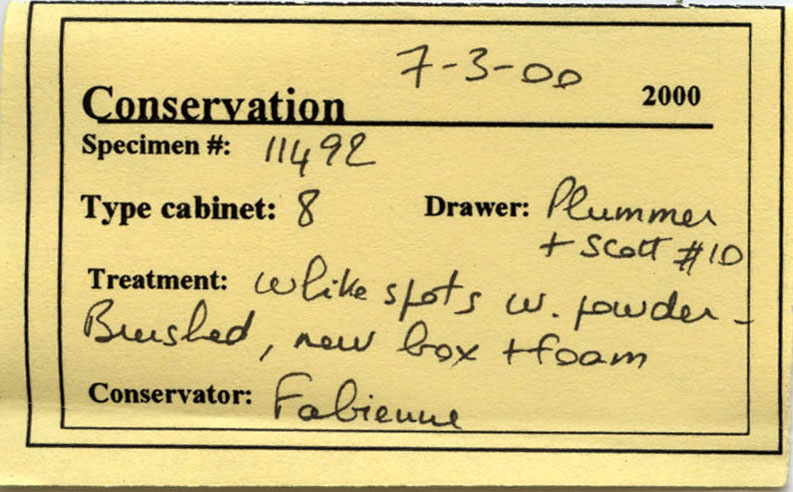 7-3-00
Conservation 2000
Specimen #: 11492
Type cabinet: 8 Drawer: Plummer
+ Scott #10
Treatment: white spots w. powder -
Brushed, new box + foam
Conservator: Fabienne